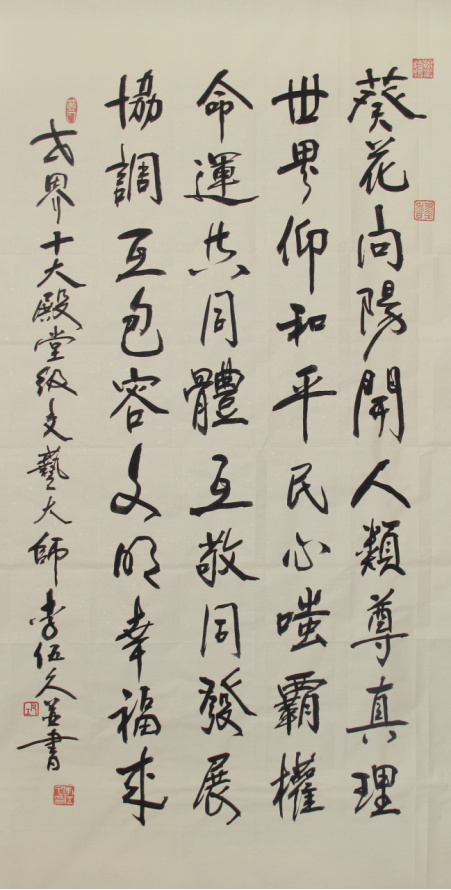 葵花向陽開人類尊真理
世界仰和平民心嗤霸權
命運共同體互敬同發展
協調互包容文明幸福来
世界十大殿堂级文藝大師李伍久並書